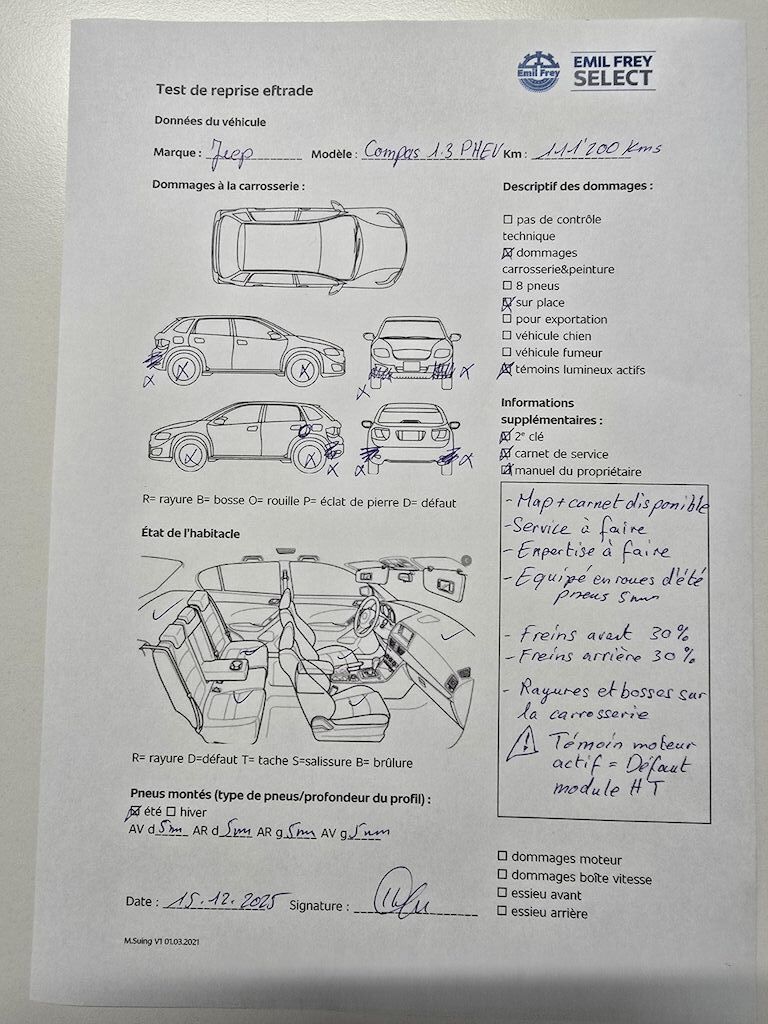 Emil Frey
EMIL FREY
SELECT
Test de reprise eftrade
Données du véhicule
Marque : Jeep Modèle : Compas 1.3 PHEV Km : 111'200 Kms
Dommages à la carrosserie :
Descriptif des dommages :
☐ pas de contrôle
technique
☒ dommages
carrosserie&peinture
☐ 8 pneus
☒ sur place
☐ pour exportation
☐ véhicule chien
☐ véhicule fumeur
☒ témoins lumineux actifs
Informations
supplémentaires :
☒ 2e clé
☒ carnet de service
☒ manuel du propriétaire
R= rayure B= bosse O= rouille P= éclat de pierre D= défaut
État de l'habitacle
- Map + carnet disponible
- Service à faire
- Expertise à faire
- Equipé en roues d'été
pneus 5mm
- Freins avant 30%
- Freins arrière 30%
- Rayures et bosses sur
la carrosserie
⚠ Témoin moteur
actif = Défaut
module HT
R= rayure D=défaut T= tache S=salissure B= brûlure
Pneus montés (type de pneus/profondeur du profil) :
☒ été ☐ hiver
AV d 5m AR d 5m AR g 5m AV g 5mm
☐ dommages moteur
☐ dommages boîte vitesse
☐ essieu avant
☐ essieu arrière
Date : 15.12.2025 Signature :
M.Suing V1 01.03.2021